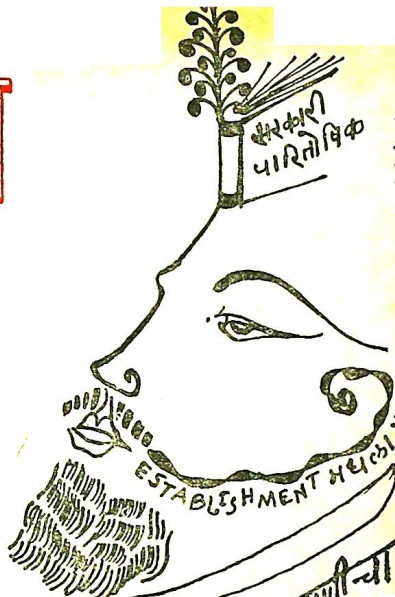 सरकारी
पारितोषिक
ESTABLISHMENT मधला